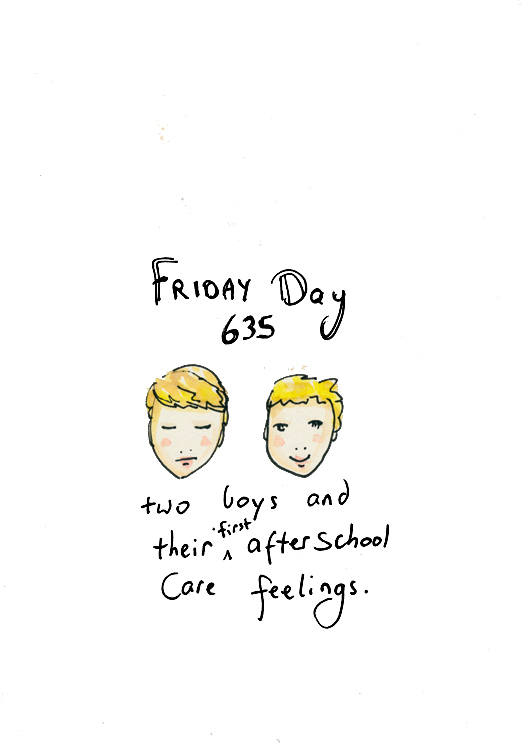 FRIDAY Day
635
two boys and
their first after school
Care feelings.